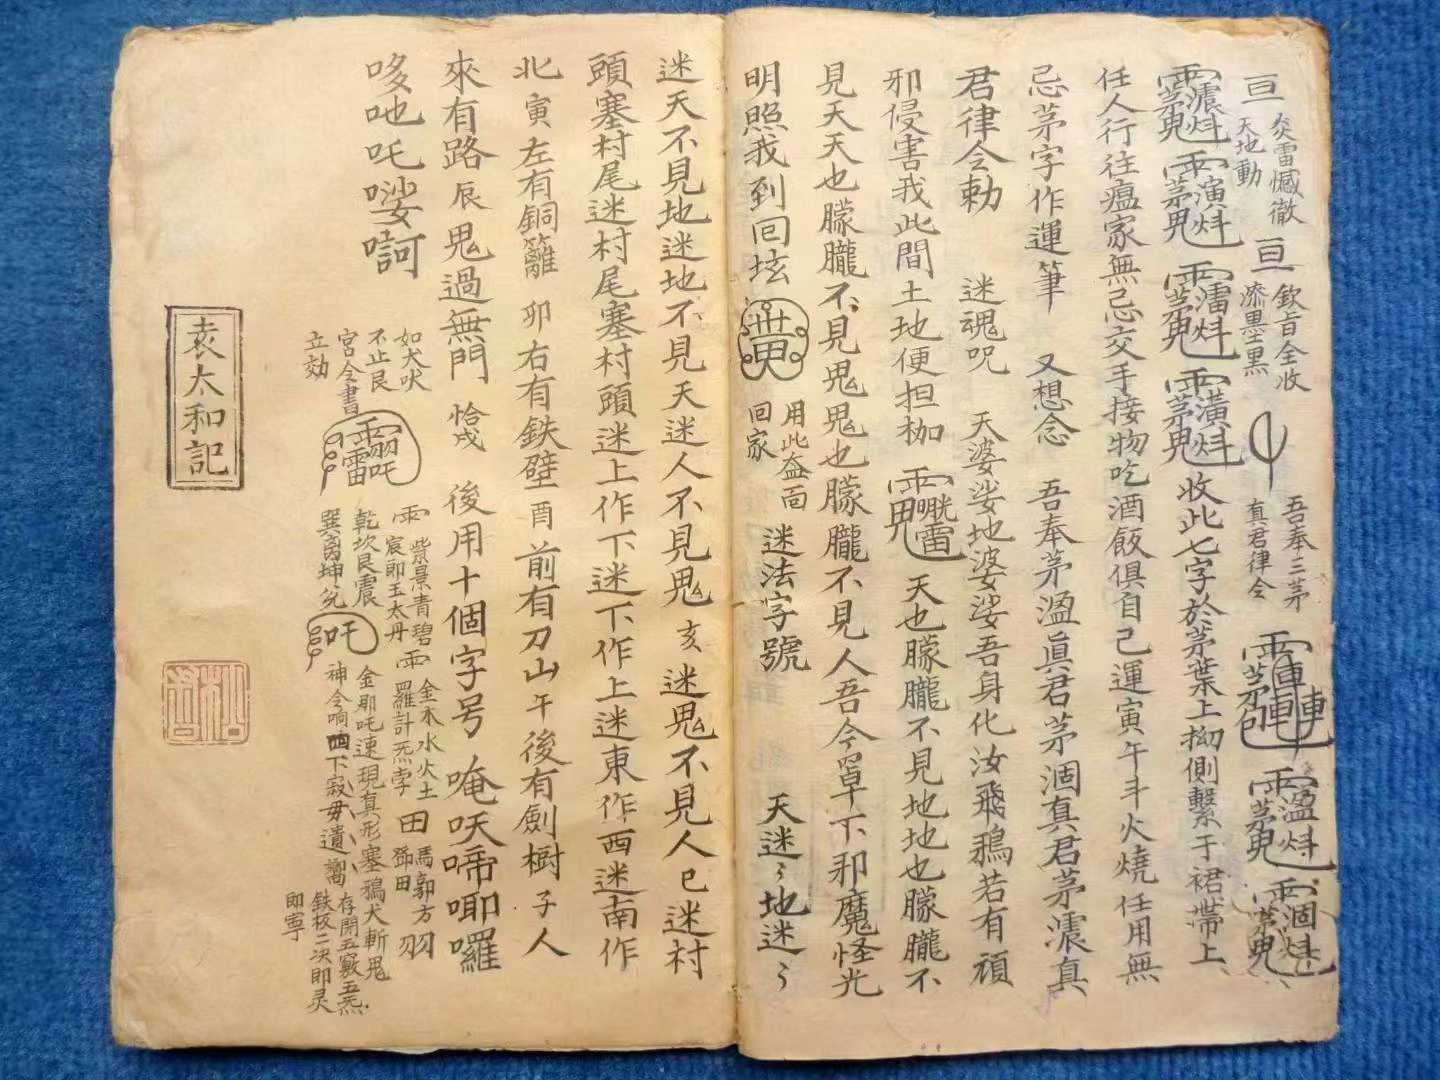 亘 炎雷憾徹
天地動
亘 欽旨全收
添墨黑
吾奉三茅
真君律令
收此七字於茅葉上拗側繫于裙帶上
任人行往瘟家無忌交手接物吃酒飯俱自己運寅午斗火燒任用無
忌茅字作運筆 又想念 吾奉茅溫真君茅涸真君茅濃真
君律令勅 迷魂呪 天婆娑地婆娑吾身化汝飛鴉若有頑
邪侵害我此間土地便担枷 天也朦朧不見地地也朦朧不
見天天也朦朧不見鬼鬼也朦朧不見人吾今罩下邪魔怪光
明照我到回坛
用此益面
回家
迷法字號 天迷〻地迷〻
迷天不見地迷地不見天迷人不見鬼亥迷鬼不見人巳迷村
頭塞村尾迷村尾塞村頭迷上作下迷下作上迷東作西迷南作
北寅左有銅籬卯右有鉄壁酉前有刀山午後有劍樹子人
來有路辰鬼過無門 恰成 後用十個字号 唵㕭啼唧囉
哆吔吒嘙訶
如犬吠
不止艮
宮令書
立効
紫景青碧
宸即玉太丹
乾坎艮震
巽离坤兌
金木水火土
羅計炁孛
田 馬郭方
鄧田
羽
吒
金那吒速現真形塞鴉大斬鬼
神令响四下寂毋遺嚮
存開五竅五炁
鉄板二决即灵
即寧
袁太和記